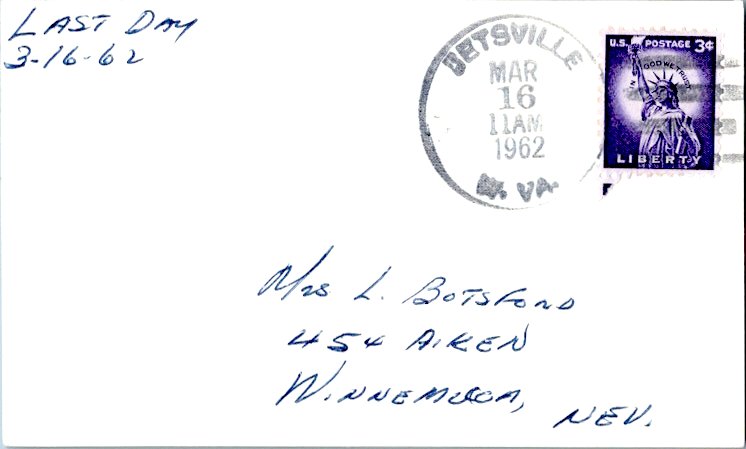 LAST DAY
3-16-62
JETSVILLE
MAR
16
11AM
1962
W. VA.
U.S. POSTAGE 3¢
IN GOD WE TRUST
LIBERTY
Mrs L. BOTSFORD
454 AIKEN
WINNEMUCCA, NEV.